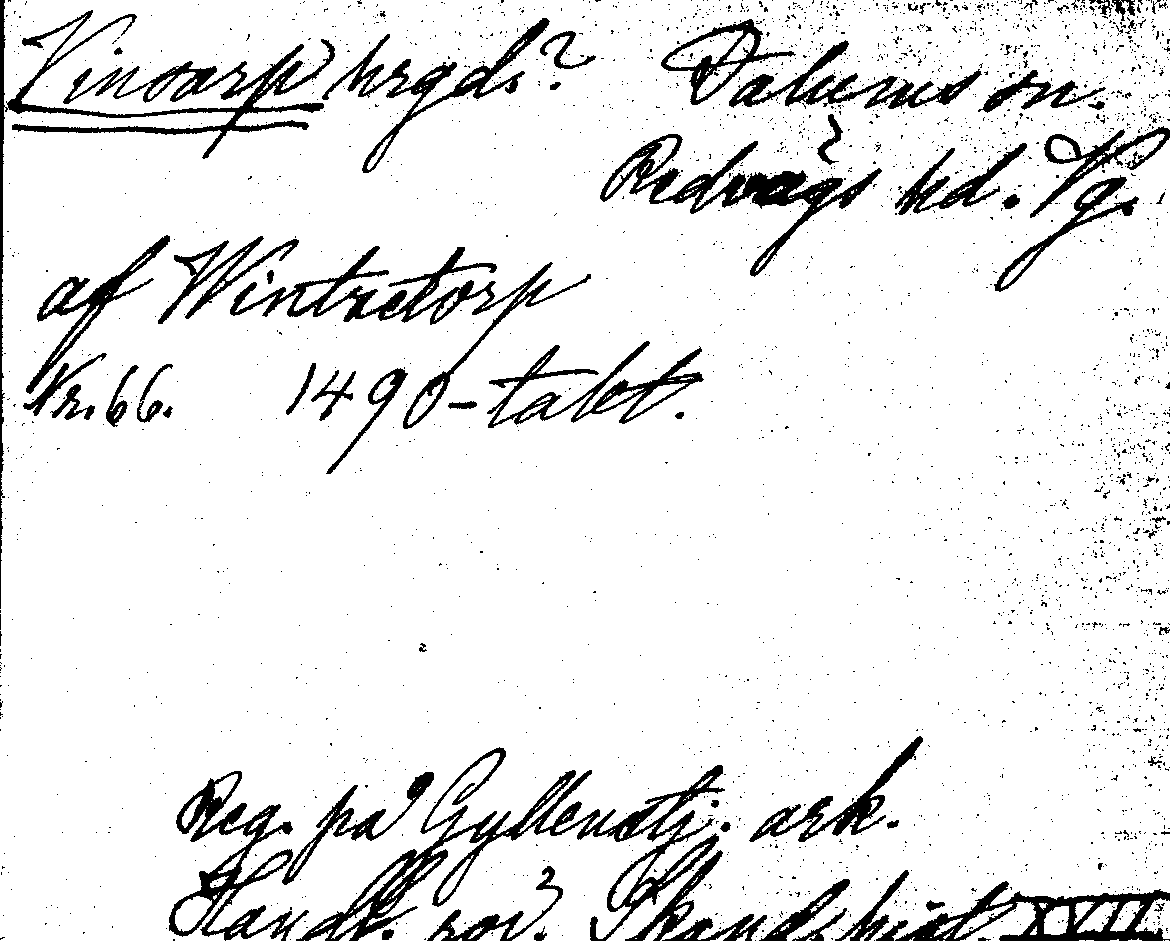 Vinsarp hrgd.? Dalums sn.
Redvägs hd. Vg.
af Wintretorp
Nr. 66. 1490-talet.
Reg. på Gyllenstj. ark.
Handl. rör. Skand. hist. XVII